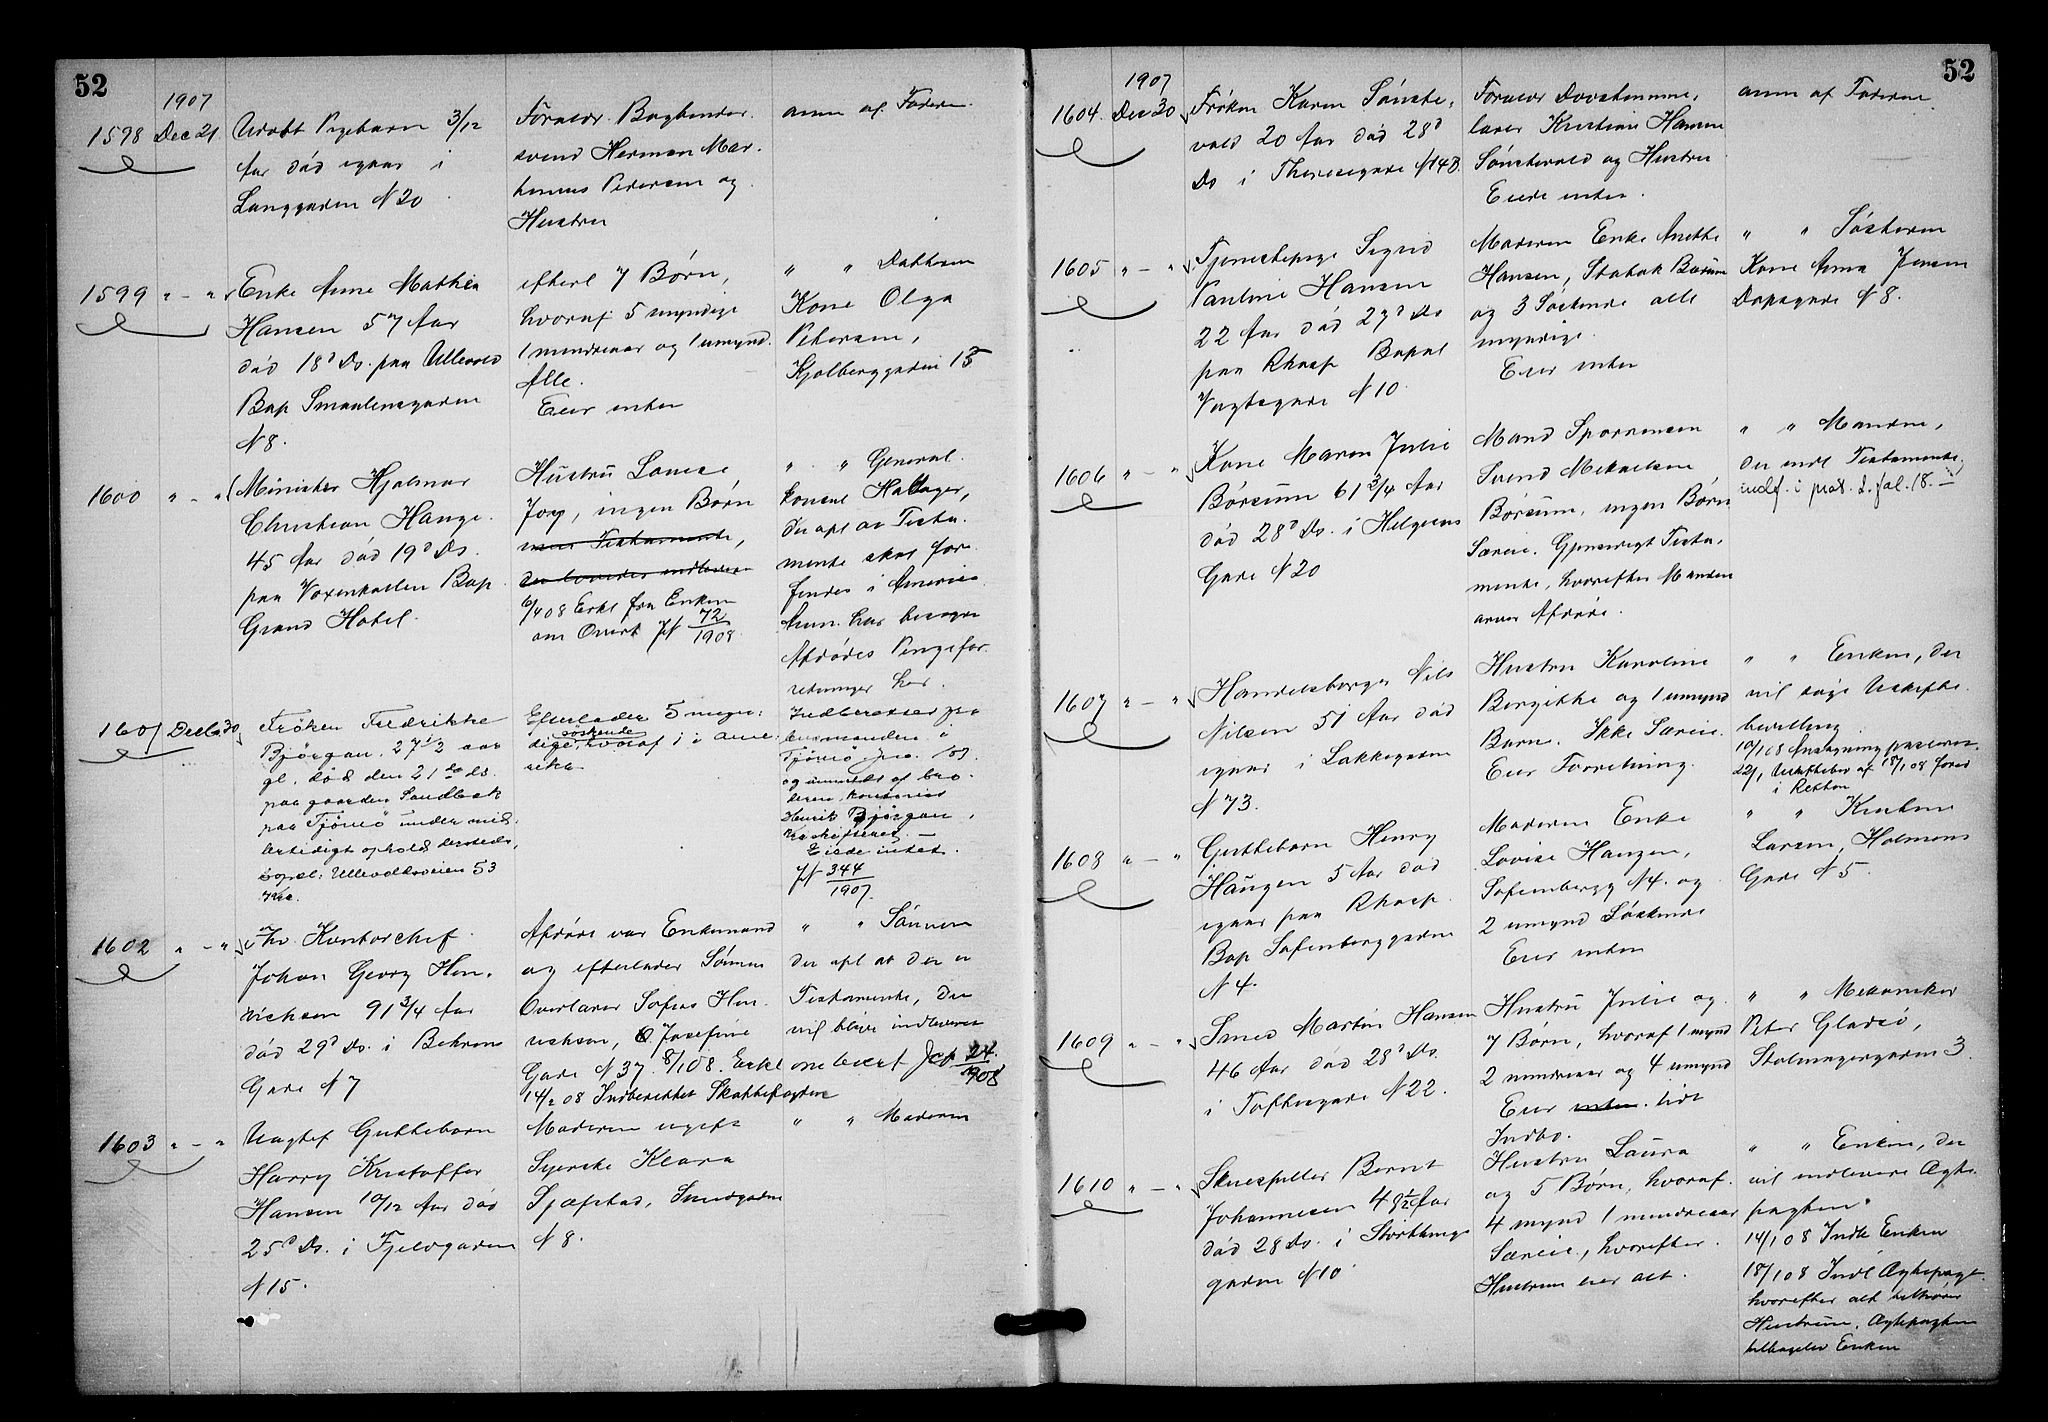 52
1907
1598 Dec 21. Udøbt Pigebarn 3/12
Aar død igaar i
Langgaden N 20
Forældr. Bogbinder-
svend Herman Mar-
Pedersen og
Hustru
anm af Faderen.
1599 " — " Enke Anne Mathea
Hansen 57 Aar
død 18d Ds. paa Ullevold
Bop Smaalensgaden
N 8.
efterl 7 Børn,
hvoraf 5 myndige
1 mindreaar og 1 umynd.
Alle.
Eier inten
" " Datteren
Kone Olga
Petersen,
Kjølberggaden 15
1600 " — " Minister Hjalmar
Christian Hauge
45 Aar død 19d Ds.
paa Voxenkollen Bop
Grand Hotel.
Hustru Louise
Joy, ingen Børn
men Testamente,
der loves indleveret
6/4 08 Erkl fra Enken
om Overt JN 72/1908
" " General-
konsul Hallager,
der opl at Testa-
mente skal for-
findes i Amerika
Anm. har besørge
Afdødes Pengefor-
retninger her.
1601 Decbr 30 Frøken Fredrikke
Bjørgan, 27 1/2 aar
gl. død den 21de ds.
paa gaarden Sandbæk
paa Tjømø under mid-
lertidigt ophold dersteds,
bopæl: Ullevoldsveien 53
Kra.
Efterlader 5 myn-
dige søskende, hvoraf 1 i Ame-
rika
Indberettet fra
lensmanden i
Tjømø
og anmeldt af bro-
deren, kontorist
Henrik Bjørgan,
Eiede intet.
JN 344/1907.
1602 " — " fhv. Kontorchef
Johan Georg Hen-
richsen 91 3/4 Aar
død 29d Ds. i Behrens
Gade N 7
Afdøde var Enkemand
og efterlader Sønnen
Overlærer Sofus Hen-
richsen, Josefine
Gade N 37. 8/1 08. Erkl om overt Jcp 24/1908
14/2 08 Indberettet Skattefogden
" " Sønnen
der opl at der er
Testamente, der
vil blive indleveret
1603 " — " Uægtef Guttebarn
Harry Kristoffer
Hansen 10/12 Aar død
25d Ds. i Fjeldgaden
N 15.
Moderen ugift
Syerske Klara
Sjæfstad, Smedgaden
N 8.
" " Moderen
52
1907
1604. Dec 30 Frøken Karen Sønste-
vold 20 Aar død 28d
Ds i Theresegade N 48.
Forældr Døvstumme-
lærer Kristian Hansen
Sønstevold og Hustru
Eiede inten.
anm af Faderen.
1605 " — " Tjenestepige Sigrid
Pauline Hansen
22 Aar død 27d Ds
paa Rhosp Bopæl
Vogtsgade N 10.
Moderen Enke Anette
Hansen, Stabæk Bærum
og 3 Søskende alle
myndige.
Eier inten
" " Søsteren
Kone Anna Jensen
Dopsgade N 8.
1606 " — " Kone Maren Julie
Børsum 61 3/4 Aar
død 28d Ds. i Helgesens
Gade N 20
Mand Spornmsen
Svend Mikaelsen
Børsum, ingen Børn
Særeie. Gjensidigt Testa-
mente, hvorefter Manden
arver Afdøde.
" " Manden,
der indl Testamente
indf. i prot. 2. fol. 18. —
1607 " — " Handelsborger Nils
Nilsen 51 Aar død
igaar i Lakkegaden
N 73.
Hustru Karoline
Bergitte og 1 umynd
Barn. Ikke Særeie.
Eier Forretning.
" " Enken, der
vil søge Uskifte-
bevilling
10/1 08 Ansøgning
22/1 Uskiftebev af 18/1 08 forev
i Retten
1608 " — " Guttebarn Henry
Haugen 5 Aar død
igaar paa Rhosp.
Bop Sofienberggaden
N 4.
Moderen Enke
Lovise Haugen,
Sofienbergg N 4. og
2 umynd Søskende
Eier inten
" " Kusine
Larsen, Holmens
Gade N 5.
1609 " — " Smed Martin Hansen
46 Aar død 28d Ds.
i Toftesgade N 22.
Hustru Julie og
7 Børn, hvoraf 1 mynd
2 mindreaar og 4 umynd
Eier inten. lidt
Indbo.
" " Mekaniker
Peter Gladsø,
Stolmagergaden 3.
1610 " — " Skuespiller Bernt
Johannesen 49 1/2 Aar
død 28 Ds. i Storthings
gaden N 10
Hustru Laura
og 5 Børn, hvoraf
4 mynd 1 mindreaar
Særeie, hvorefter
Hustruen eier alt.
" " Enken, der
vil indlevere Ægte-
pagten.
14/1 08 Indk Enken
18/1 08 Indl Ægtepagt
hvorefter alt tilhører
Hustruen. Ægtepagten
tilbagelev Enken